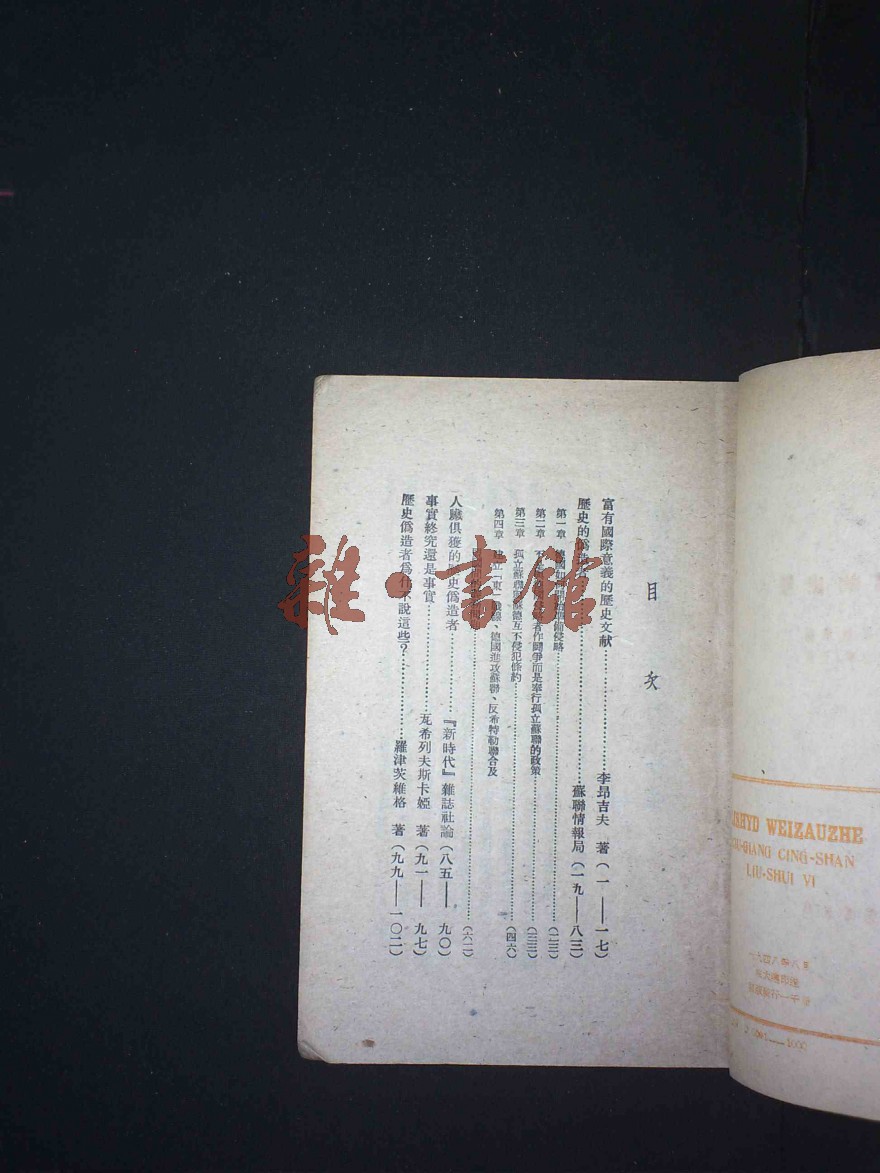 目次
富有國際意義的歷史文献…………李昂吉夫 著(一——一七)
歷史的僞造者…………蘇聯情報局(一九——八三)
第一章 德國…侵略…………(二三)
第二章 不…者作鬪爭而是奉行孤立蘇聯的政策…………(三三)
第三章 孤立蘇聯與蘇德互不侵犯條約…………(四六)
第四章 建立「東…線、德國進攻蘇聯、反希特勒聯合及
…………(六二)
人臟俱獲的歷史僞造者…………『新時代』雜誌社論(八五——九〇)
事實終究還是事實…………瓦希列夫斯卡婭 著(九一——九七)
歷史僞造者爲什不說這些?…………羅津茨維格 著(九九——一〇二)
雜·書館
WEIZAUZHE
CING-SHAN
LIU-SHUI VI
一九四八年八月